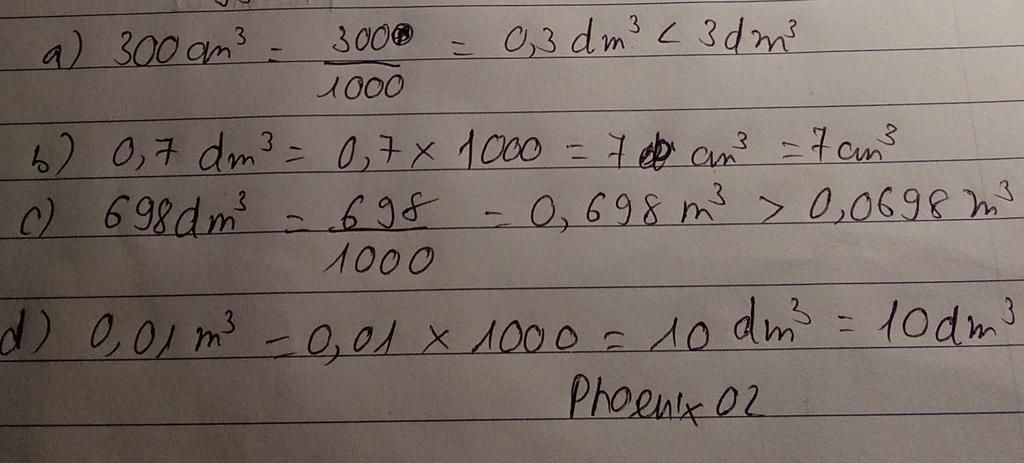 a) 300 cm³ = 300/1000 = 0,3 dm³ < 3 dm³
b) 0,7 dm³ = 0,7 × 1000 = 7 cm³ = 7 cm³
c) 698 dm³ = 698/1000 = 0,698 m³ > 0,0698 m³
d) 0,01 m³ = 0,01 × 1000 = 10 dm³ = 10 dm³
Phoenix 02